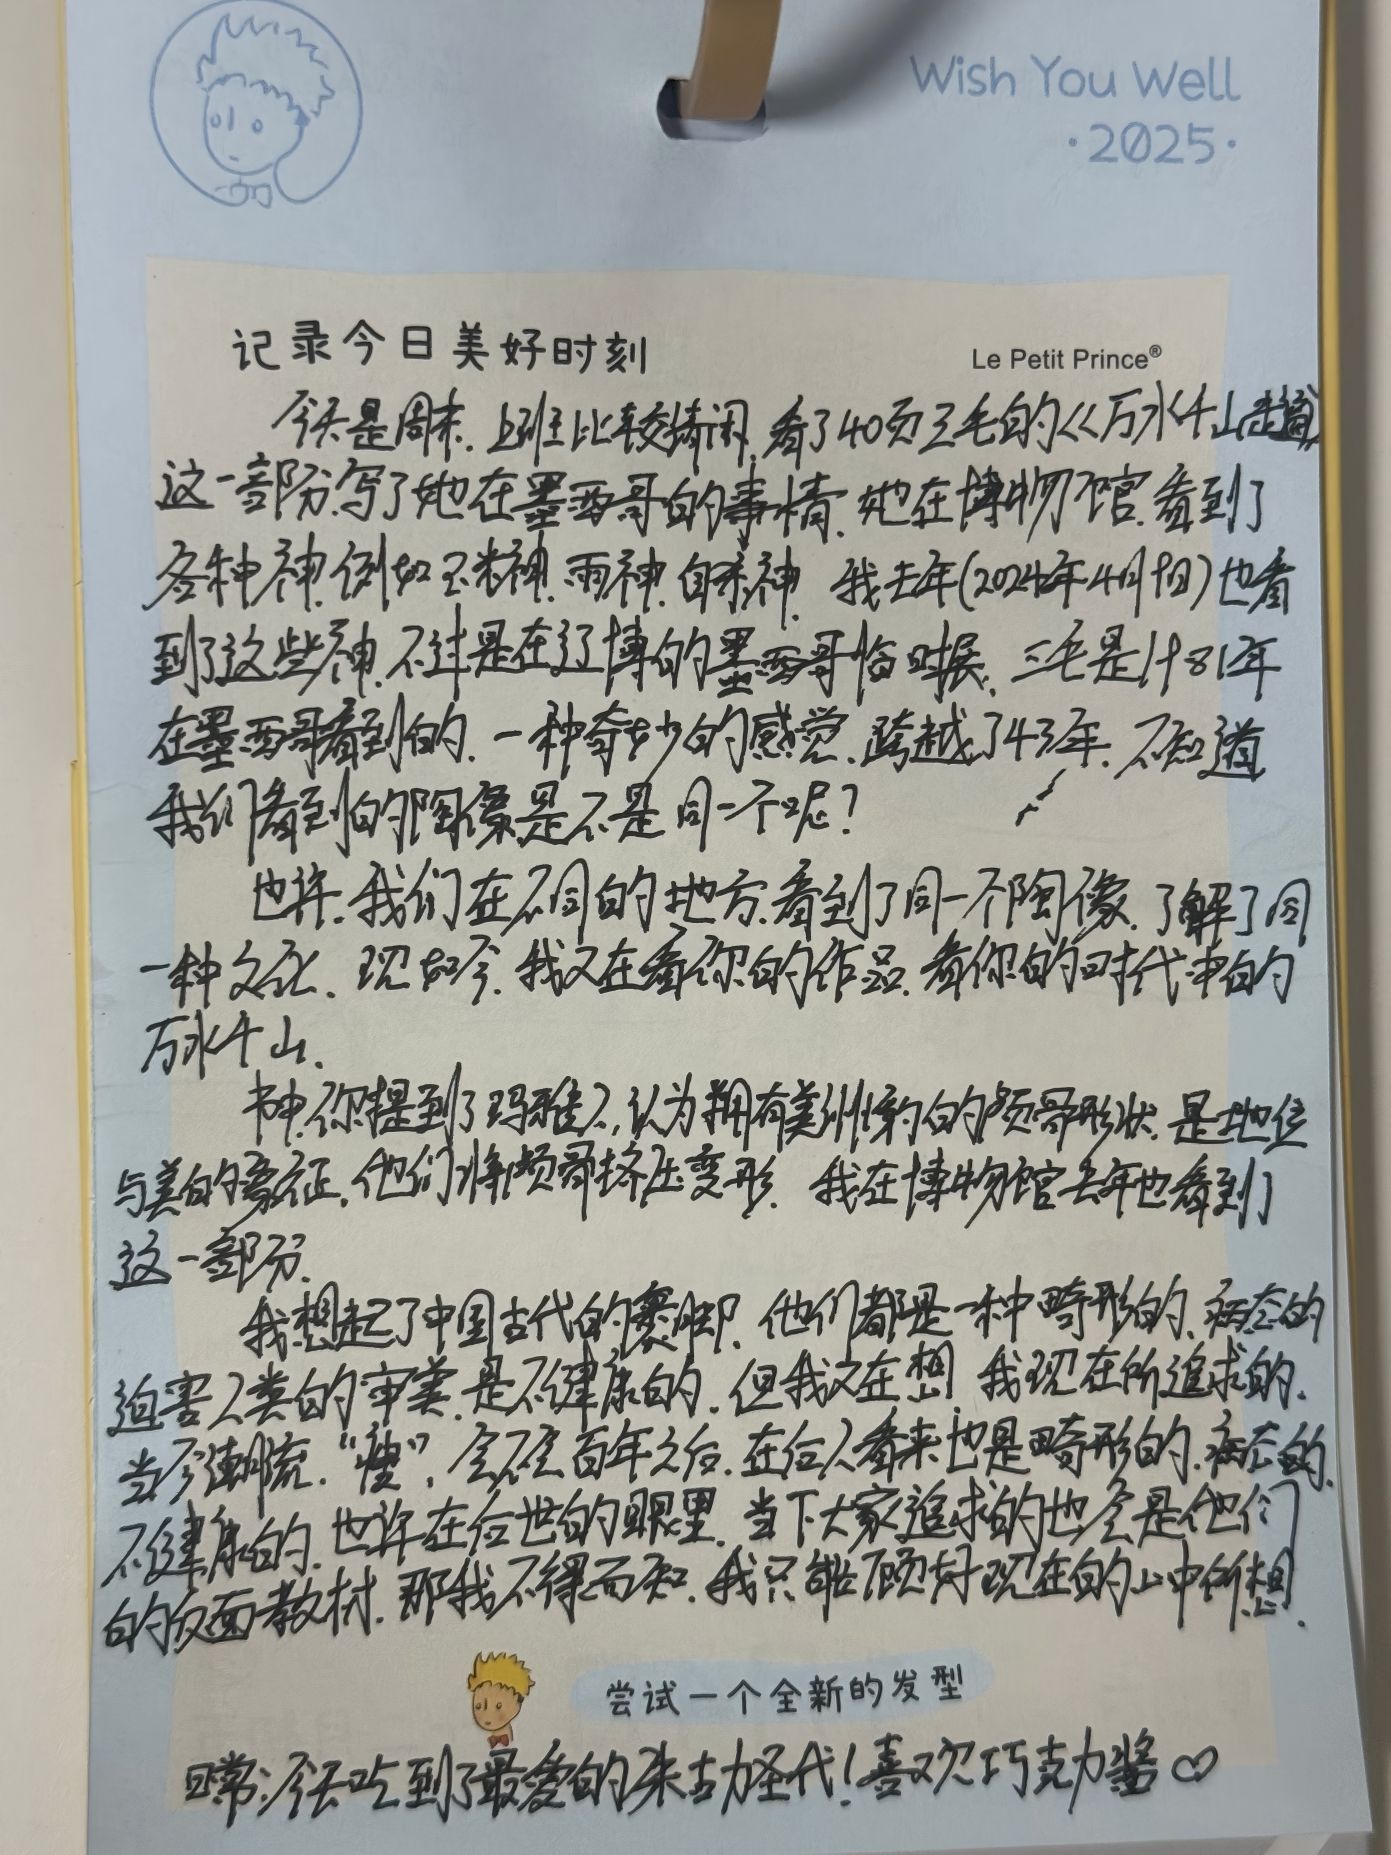 Wish You Well
·2025·
记录今日美好时刻
Le Petit Prince®
今天是周末,上班比较清闲,看了40页三毛的《万水千山走遍》
这一部分,写了她在墨西哥的事情,她在博物馆,看到了
各种神,例如玉米神,雨神,自杀神,我去年(2024年4月)也看
到了这些神,不过是在辽博的墨西哥临时展,三毛是1981年
在墨西哥看到的,一种奇妙的感觉,跨越了43年,不知道
我们看到的陶像是不是同一个呢?
也许,我们在不同的地方,看到了同一个陶像,了解了同
一种文化,现如今,我又在看你的作品,看你的时代中的
万水千山,
书中,你提到了玛雅人,认为拥有美洲豹的颅骨形状,是地位
与美的象征,他们将颅骨挤压变形,我在博物馆去年也看到了
这一部分,
我想起了中国古代的裹脚,他们都是一种畸形的,病态的
迫害人类的审美,是不健康的,但我又在想,我现在所追求的,
当今潮流,“瘦”,会不会百年之后,在后人看来也是畸形的,病态的,
不健康的,也许在后世的眼里,当下大家追求的也会是他们
的反面教材,那我不得而知,我只能顾好现在的心中所想,
尝试一个全新的发型
日常:今天吃到了最爱的朱古力圣代!喜欢巧克力酱♡